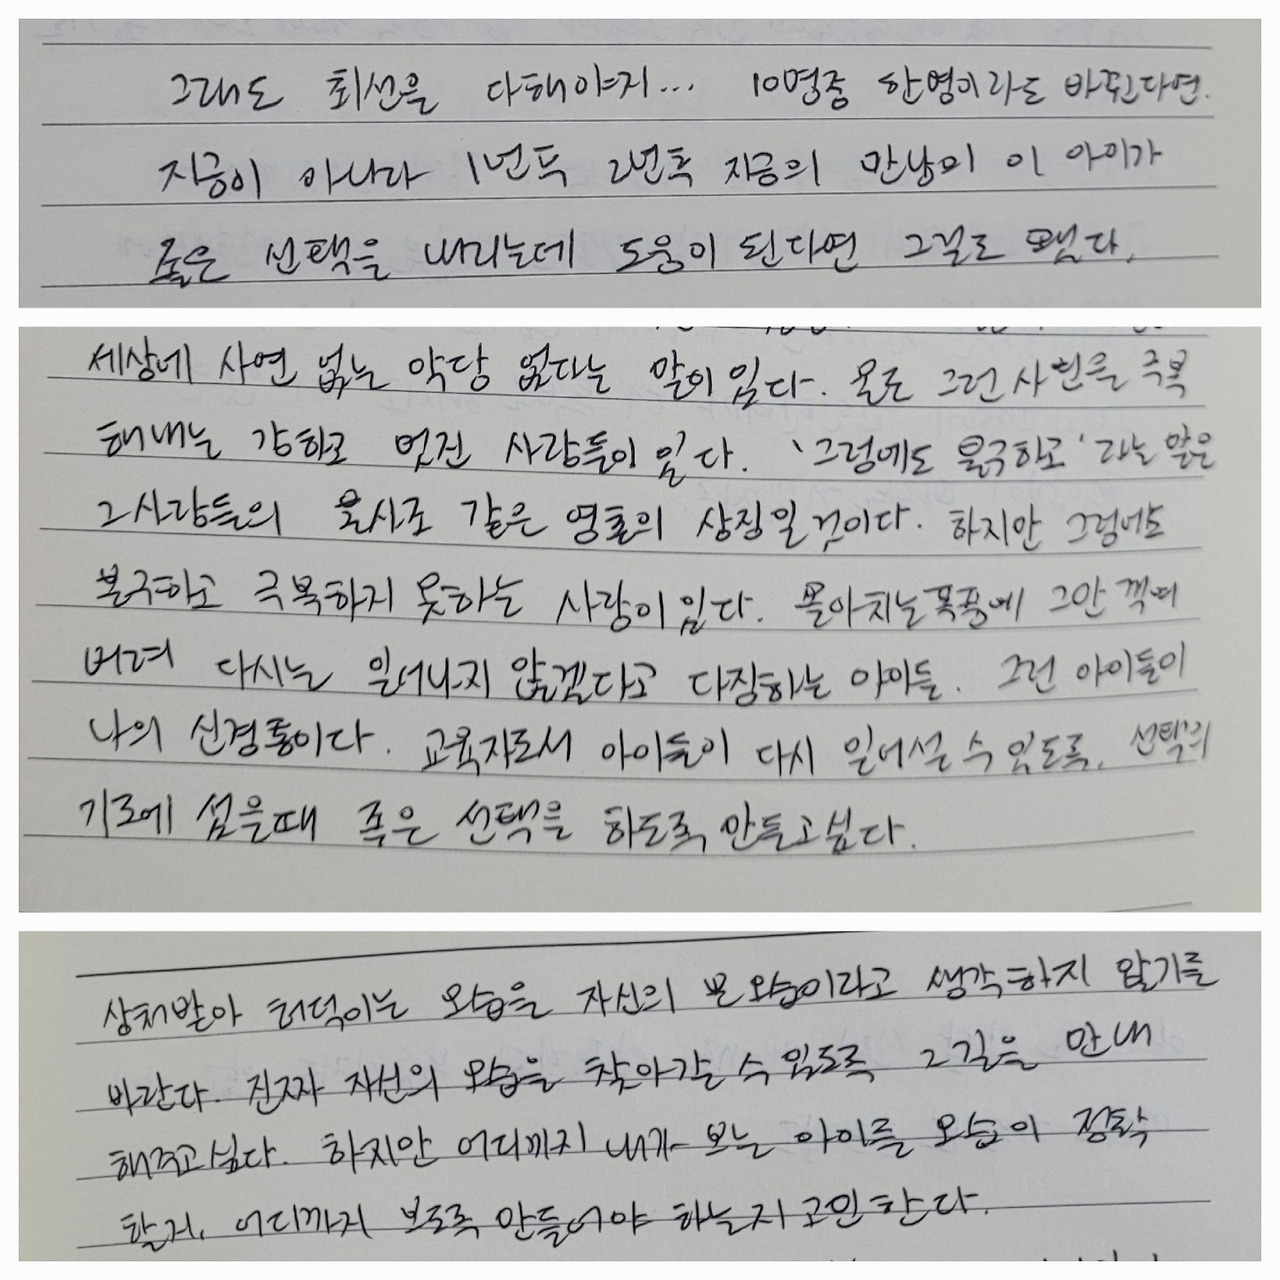 그래도 최선을 다해야지... 10명중 한명이라도 바뀐다면.
지금이 아니라 1년뒤 2년뒤 지금의 만남이 이 아이가
좋은 선택을 내리는데 도움이 된다면 그걸로 됐다.
세상에 사연 없는 악당 없다는 말이 있다. 물론 그런 사연을 극복
해내는 강하고 멋진 사람들이 있다. '그럼에도 불구하고' 라는 말은
그사람들의 보석같은 영혼의 상징일 것이다. 하지만 그럼에도
불구하고 극복하지 못하는 사람이 있다. 몰아치는 폭풍에 그만 꺾여
버려 다시는 일어나지 않겠다고 다짐하는 아이들. 그런 아이들이
나의 신경통이다. 교육자로서 아이들이 다시 일어설 수 있도록, 선택의
기로에 섰을때 좋은 선택을 하도록 만들고싶다.
상처받아 허덕이는 모습을 자신의 본모습이라고 생각하지 않기를
바란다. 진짜 자신의 모습을 찾아갈 수 있도록 그 길을 안내
해주고싶다. 하지만 어디까지 내가 보는 아이들 모습이 정확
할지, 어디까지 보도록 만들어야 하는지 고민한다.